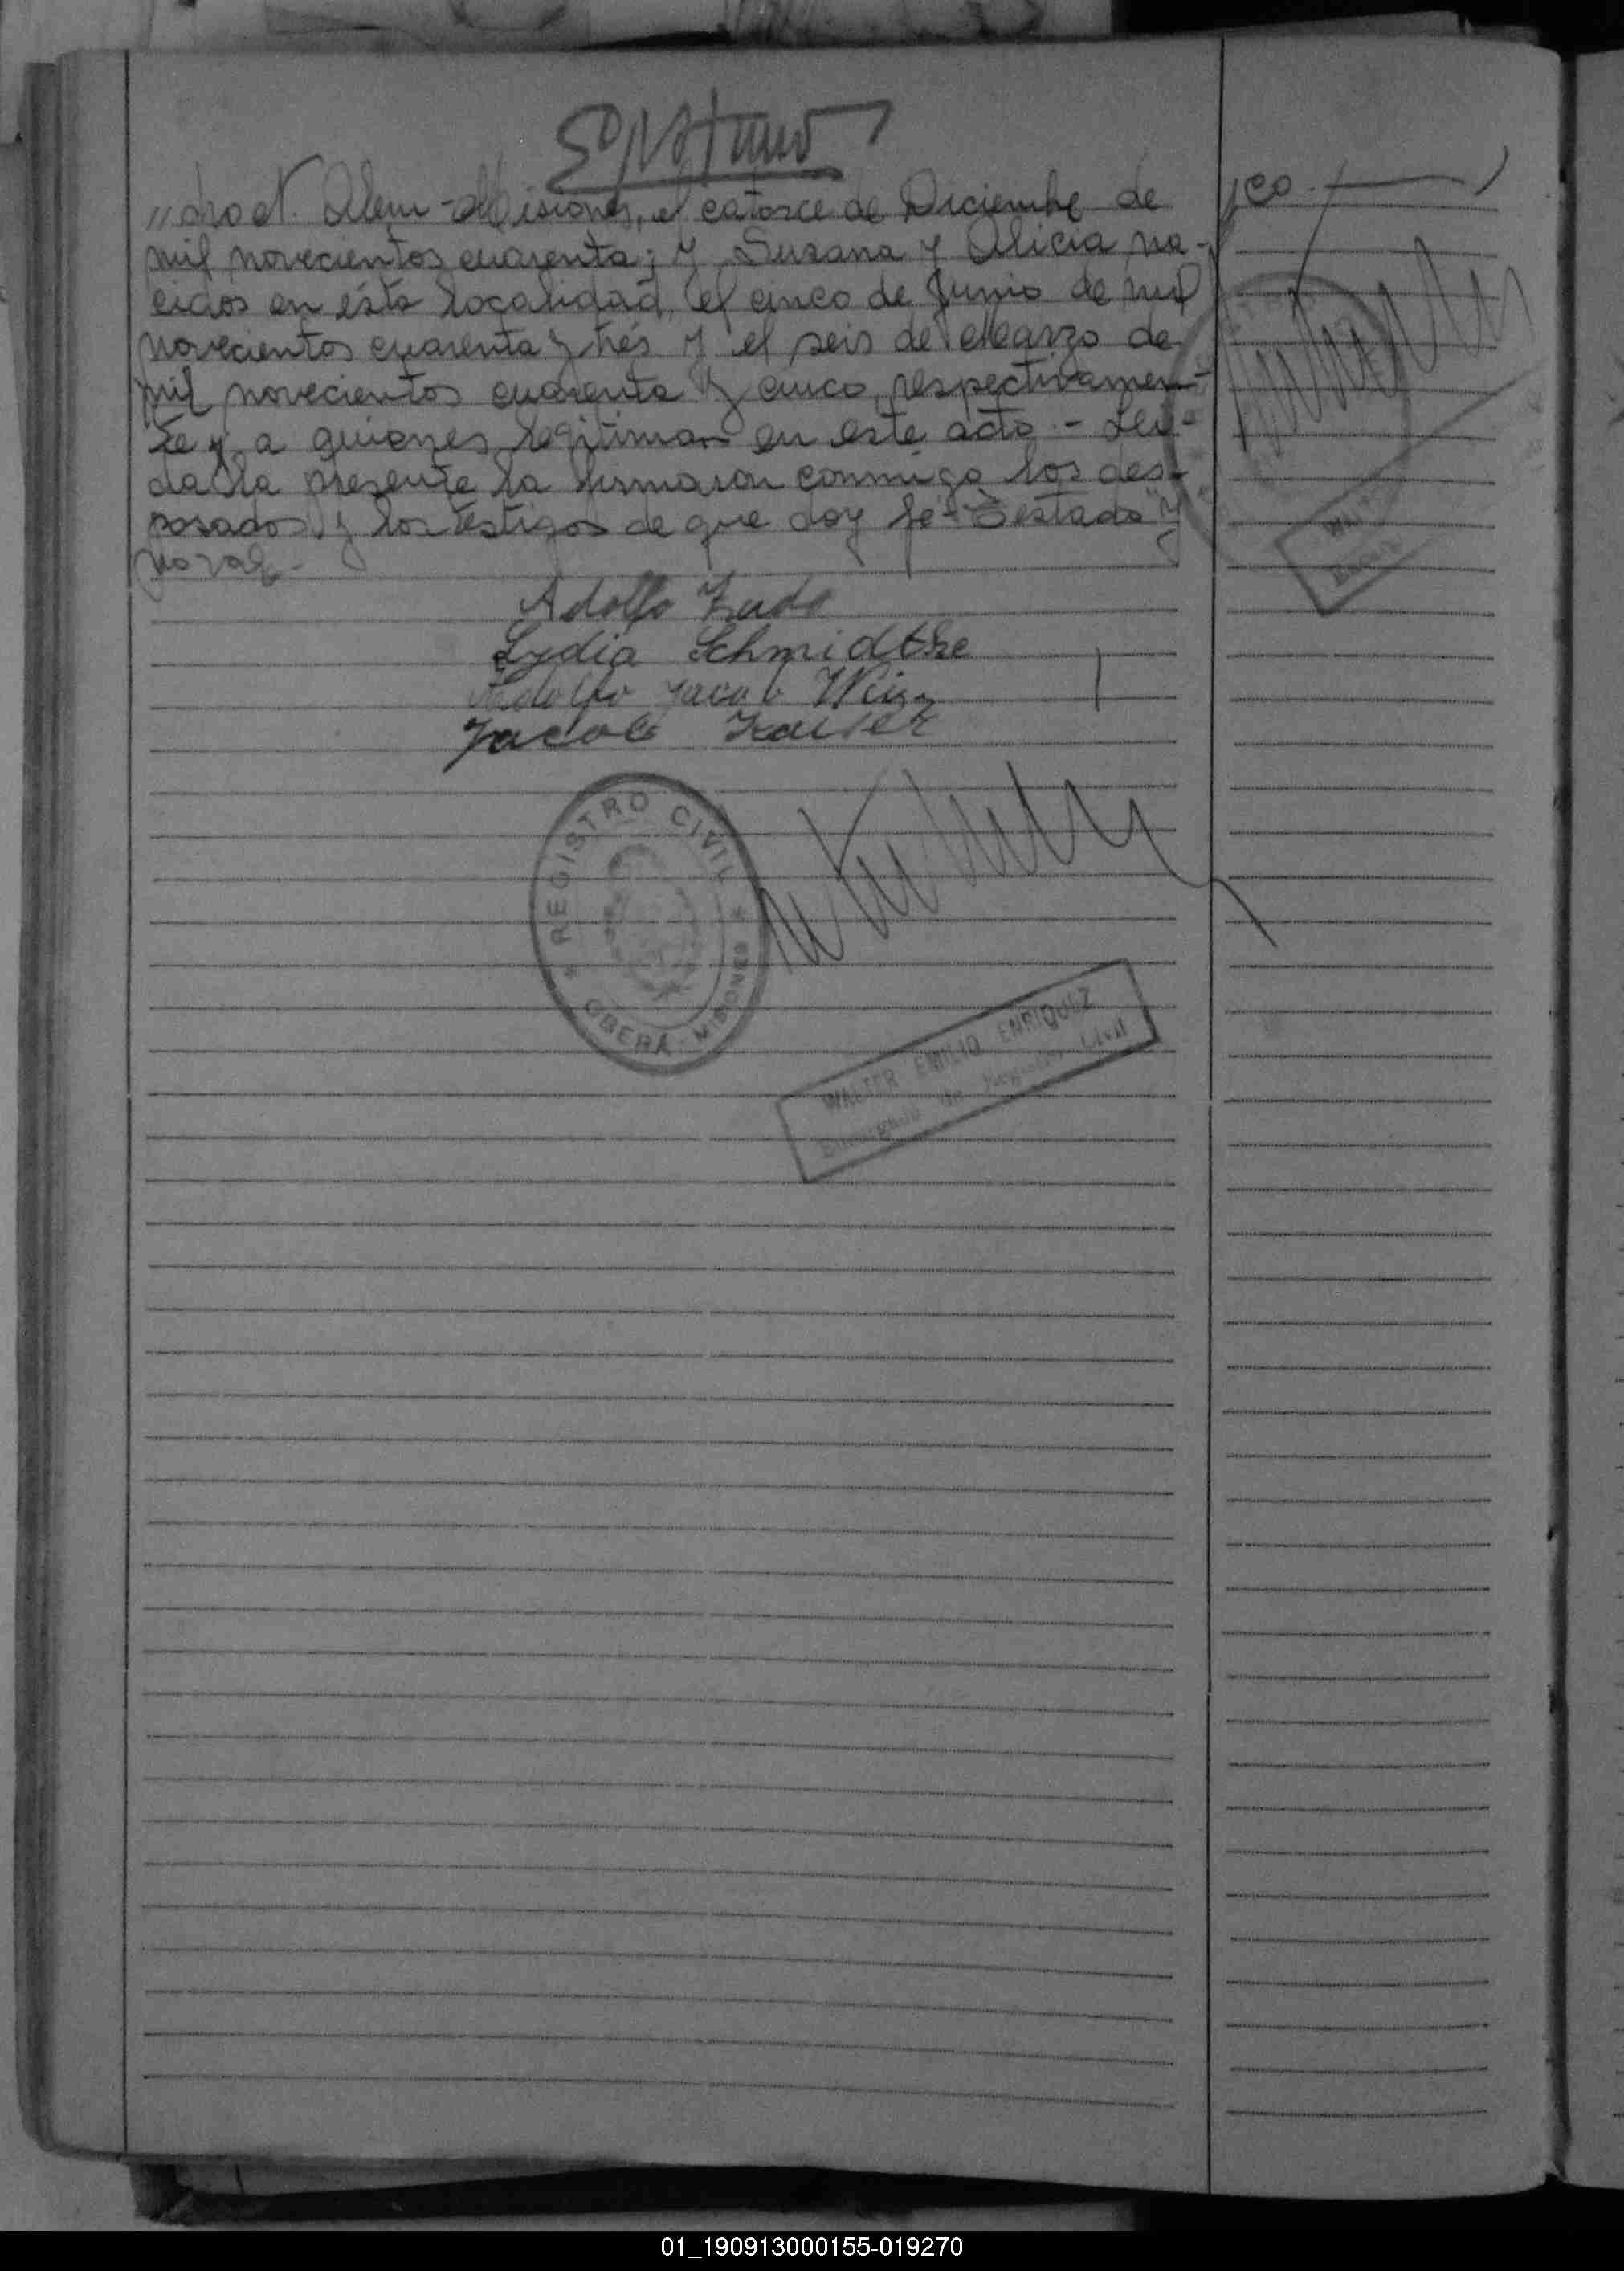 "dro N. Alem - Misiones, el catorce de Diciembre de
mil novecientos cuarenta; y Susana y Alicia na-
cidos en ésta localidad, el cinco de Junio de mil
novecientos cuarenta y trés y el seis de Marzo de
mil novecientos cuarenta y cinco, respectivamen-
te y a quienes legitiman en este acto.- Leí-
da la presente la firmaron conmigo los des-
posados y los testigos de que doy fe - Testado "y"
no vale.-
Adolfo
Lydia Schmidtke
Adolfo Jacob
Jacob Kaiser
REGISTRO CIVIL
OBERA - MISIONES
WALTER EMILIO ENRIQUEZ
Encargado de Registro Civil
"co.-
WALT
Encar
01_190913000155-019270